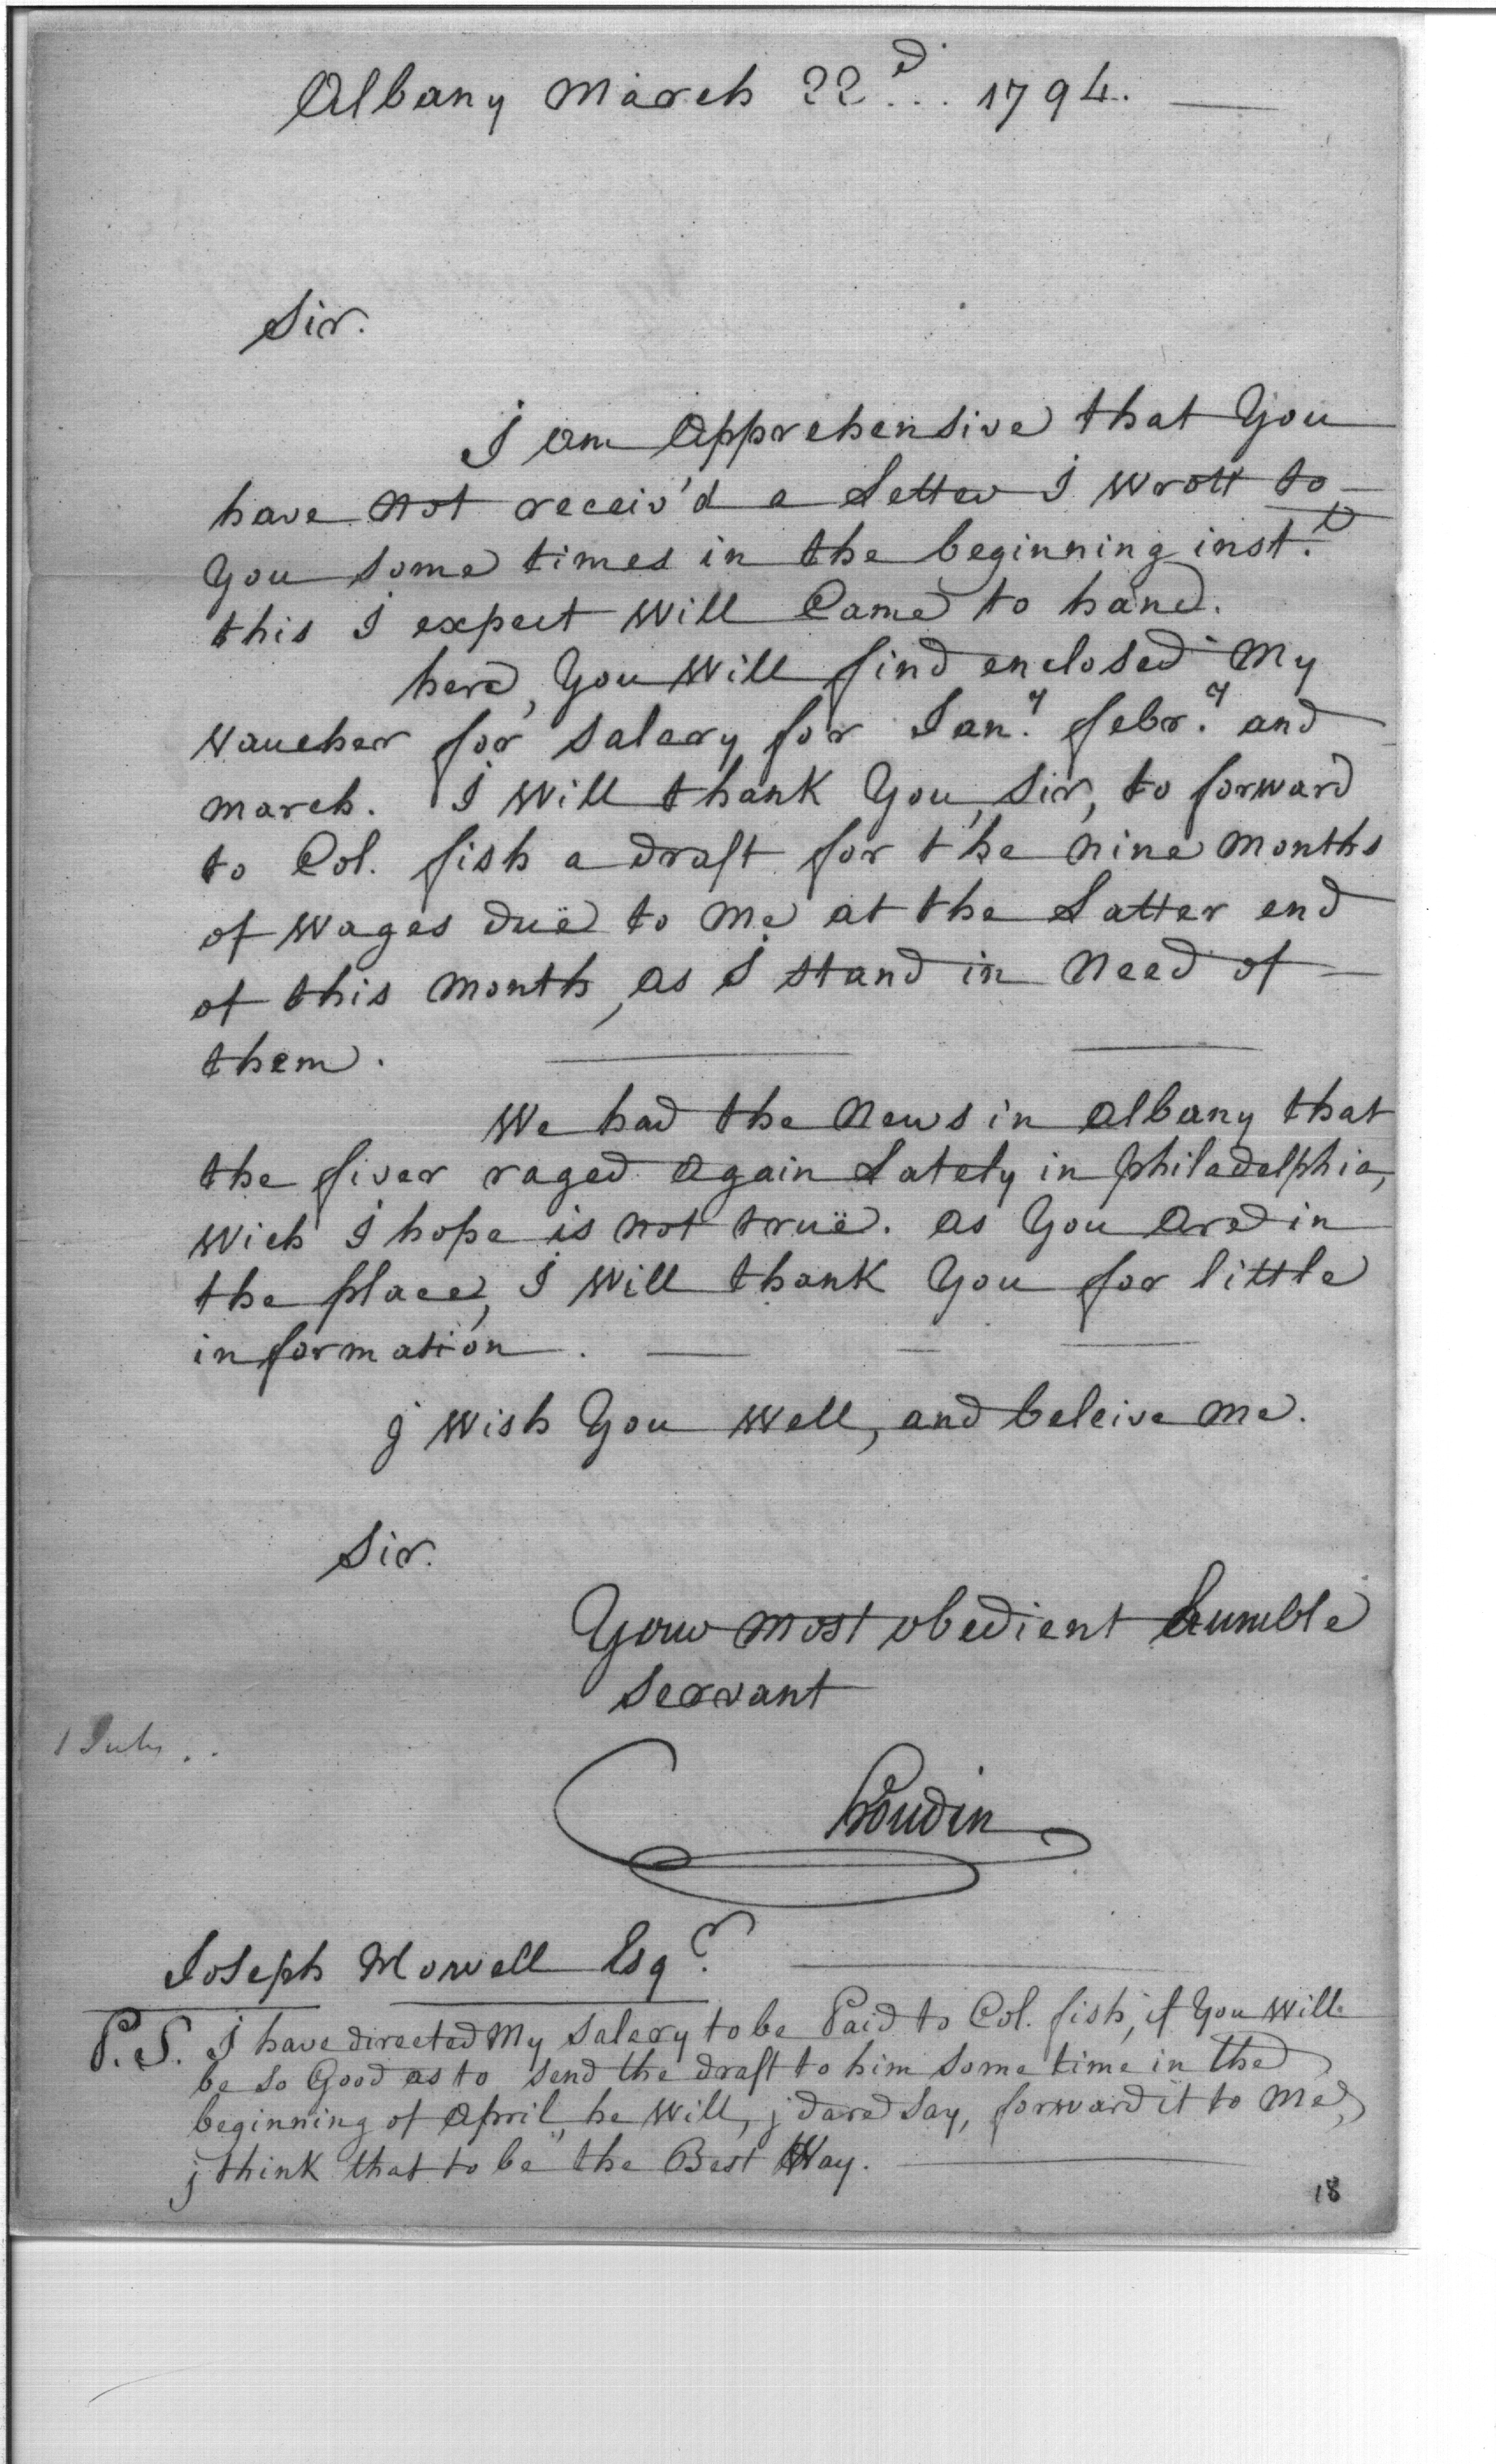 Albany March 22.d.. 1794.
Sir.
I am Apprehensive that You
have not receiv'd a Letter I wrott to
You some times in the beginning inst.t
this I expect will Came to hand.
here, You will find enclosed My
Waucher for Salary for Jan.y febr.y and
march. I will thank You, Sir, to forward
to Col. fish a draft for the nine Months
of Wages duë to Me at the Latter end
of this month, as I stand in Need of
them.
We had the News in Albany that
the fiver raged Again Lately in philadelphia,
wich I hope is not truë. as You Are in
the place, I will thank You for little
information.
j wish You well, and beleive me.
Sir.
Your most obedient humble
Servant
1 July..
Joseph Howell Esq.r
P.S. I have directed My Salary to be Paid to Col. fish, if You will
be so Good as to send the draft to him some time in the
beginning of April, he will, j dare Say, forward it to Me,
j think that to be the Best Way.
18